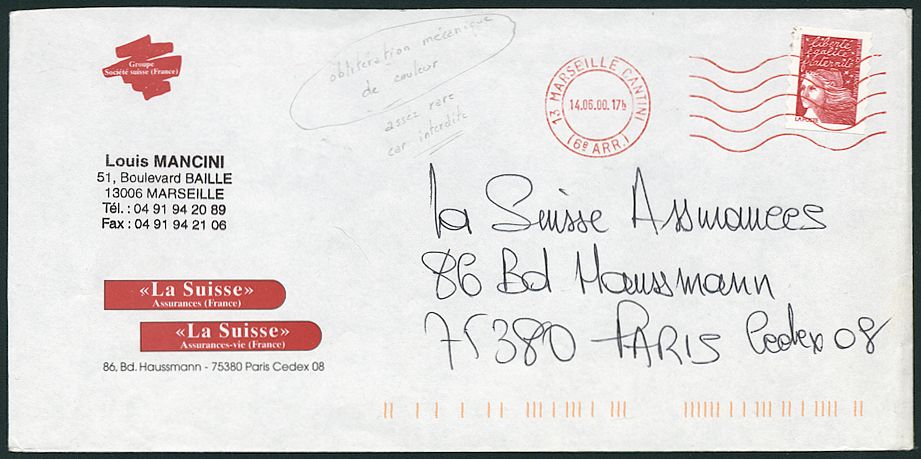 Groupe
Société suisse (France)
oblitération mécanique
de couleur
assez rare
car interdite
13 MARSEILLE CANTINI
14.06.00.17h
(6e ARR.)
liberté
égalité
fraternité
LA POSTE
Louis MANCINI
51, Boulevard BAILLE
13006 MARSEILLE
Tél. : 04 91 94 20 89
Fax : 04 91 94 21 06
La Suisse Assurances
86 Bd Haussmann
75380 PARIS Cedex 08
«La Suisse»
Assurances (France)
«La Suisse»
Assurances-vie (France)
86, Bd. Haussmann - 75380 Paris Cedex 08